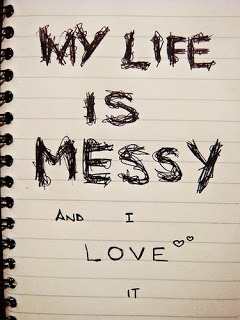 MY LIFE
IS
MESSY
AND I
LOVE
IT